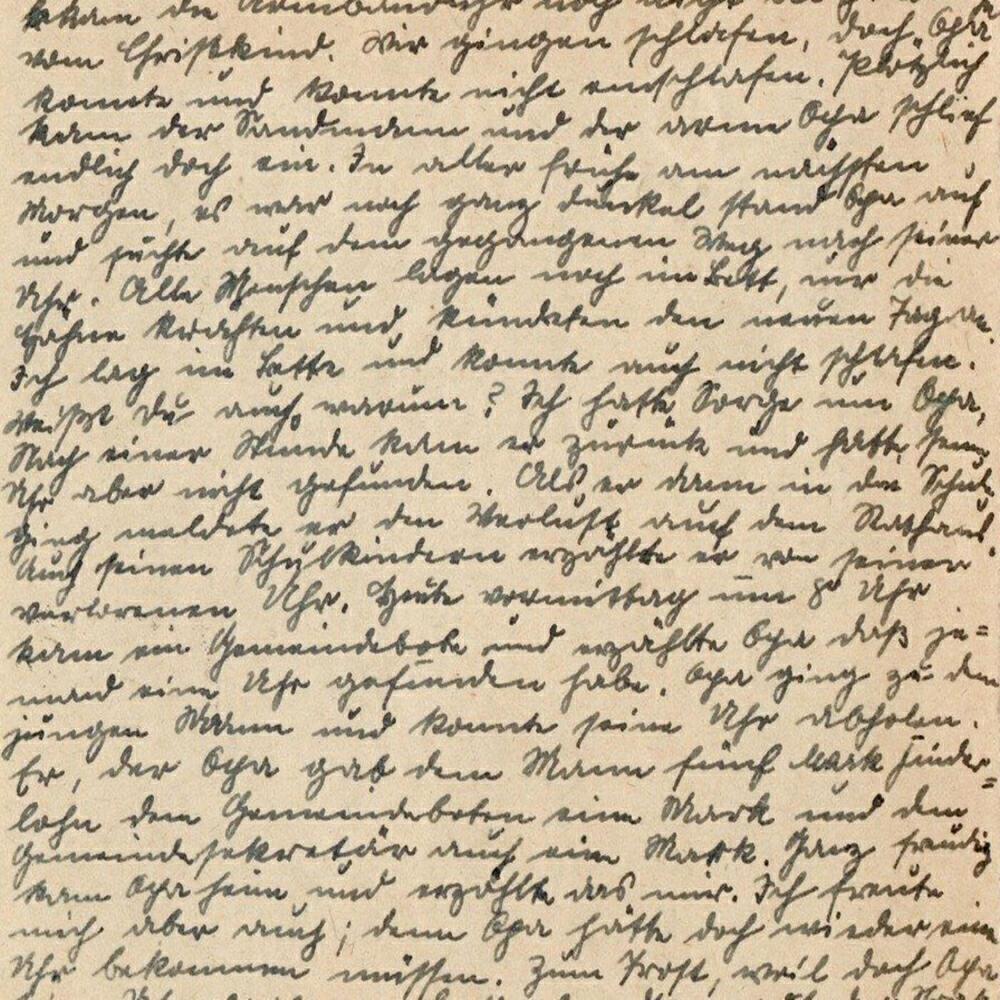 kam die Armbanduhr noch nicht
vom Christkind. Wir gingen schlafen, doch Opa
konnte und konnte nicht einschlafen. Plötzlich
kam der Sandmann und der arme Opa schlief
endlich doch ein. In aller frühe am nächsten
Morgen, es war noch ganz dunkel stand Opa auf
und suchte auf dem gegangenen Weg nach seiner
Uhr. Alle Menschen lagen noch im Bett, nur die
Hähne krähten und kündeten den neuen Tag an.
Ich lag im Bette und konnte auch nicht schlafen.
Weißt Du auch warum? Ich hatte Sorge um Opa.
Nach einer Stunde kam er zurück und hatte seine
Uhr aber nicht gefunden. Als er dann in die Schule
ging meldete er den Verlust auf dem Rathaus.
Auch seinen Schulkindern erzählte er von seiner
verlorenen Uhr. Heute vormittag um 8 Uhr
kam ein Gemeindebote und erzählte Opa daß je=
mand eine Uhr gefunden habe. Opa ging zu dem
jungen Mann und konnte seine Uhr abholen.
Er, der Opa gab dem Mann fünf Mark Finder=
lohn dem Gemeindeboten eine Mark und dem
Gemeindesekretär auch eine Mark. Ganz freudig
kam Opa heim und erzählte das mir. Ich freute
mich aber auch; denn Opa hätte doch wieder eine
Uhr bekommen müssen. Zum Trost, weil doch Opa